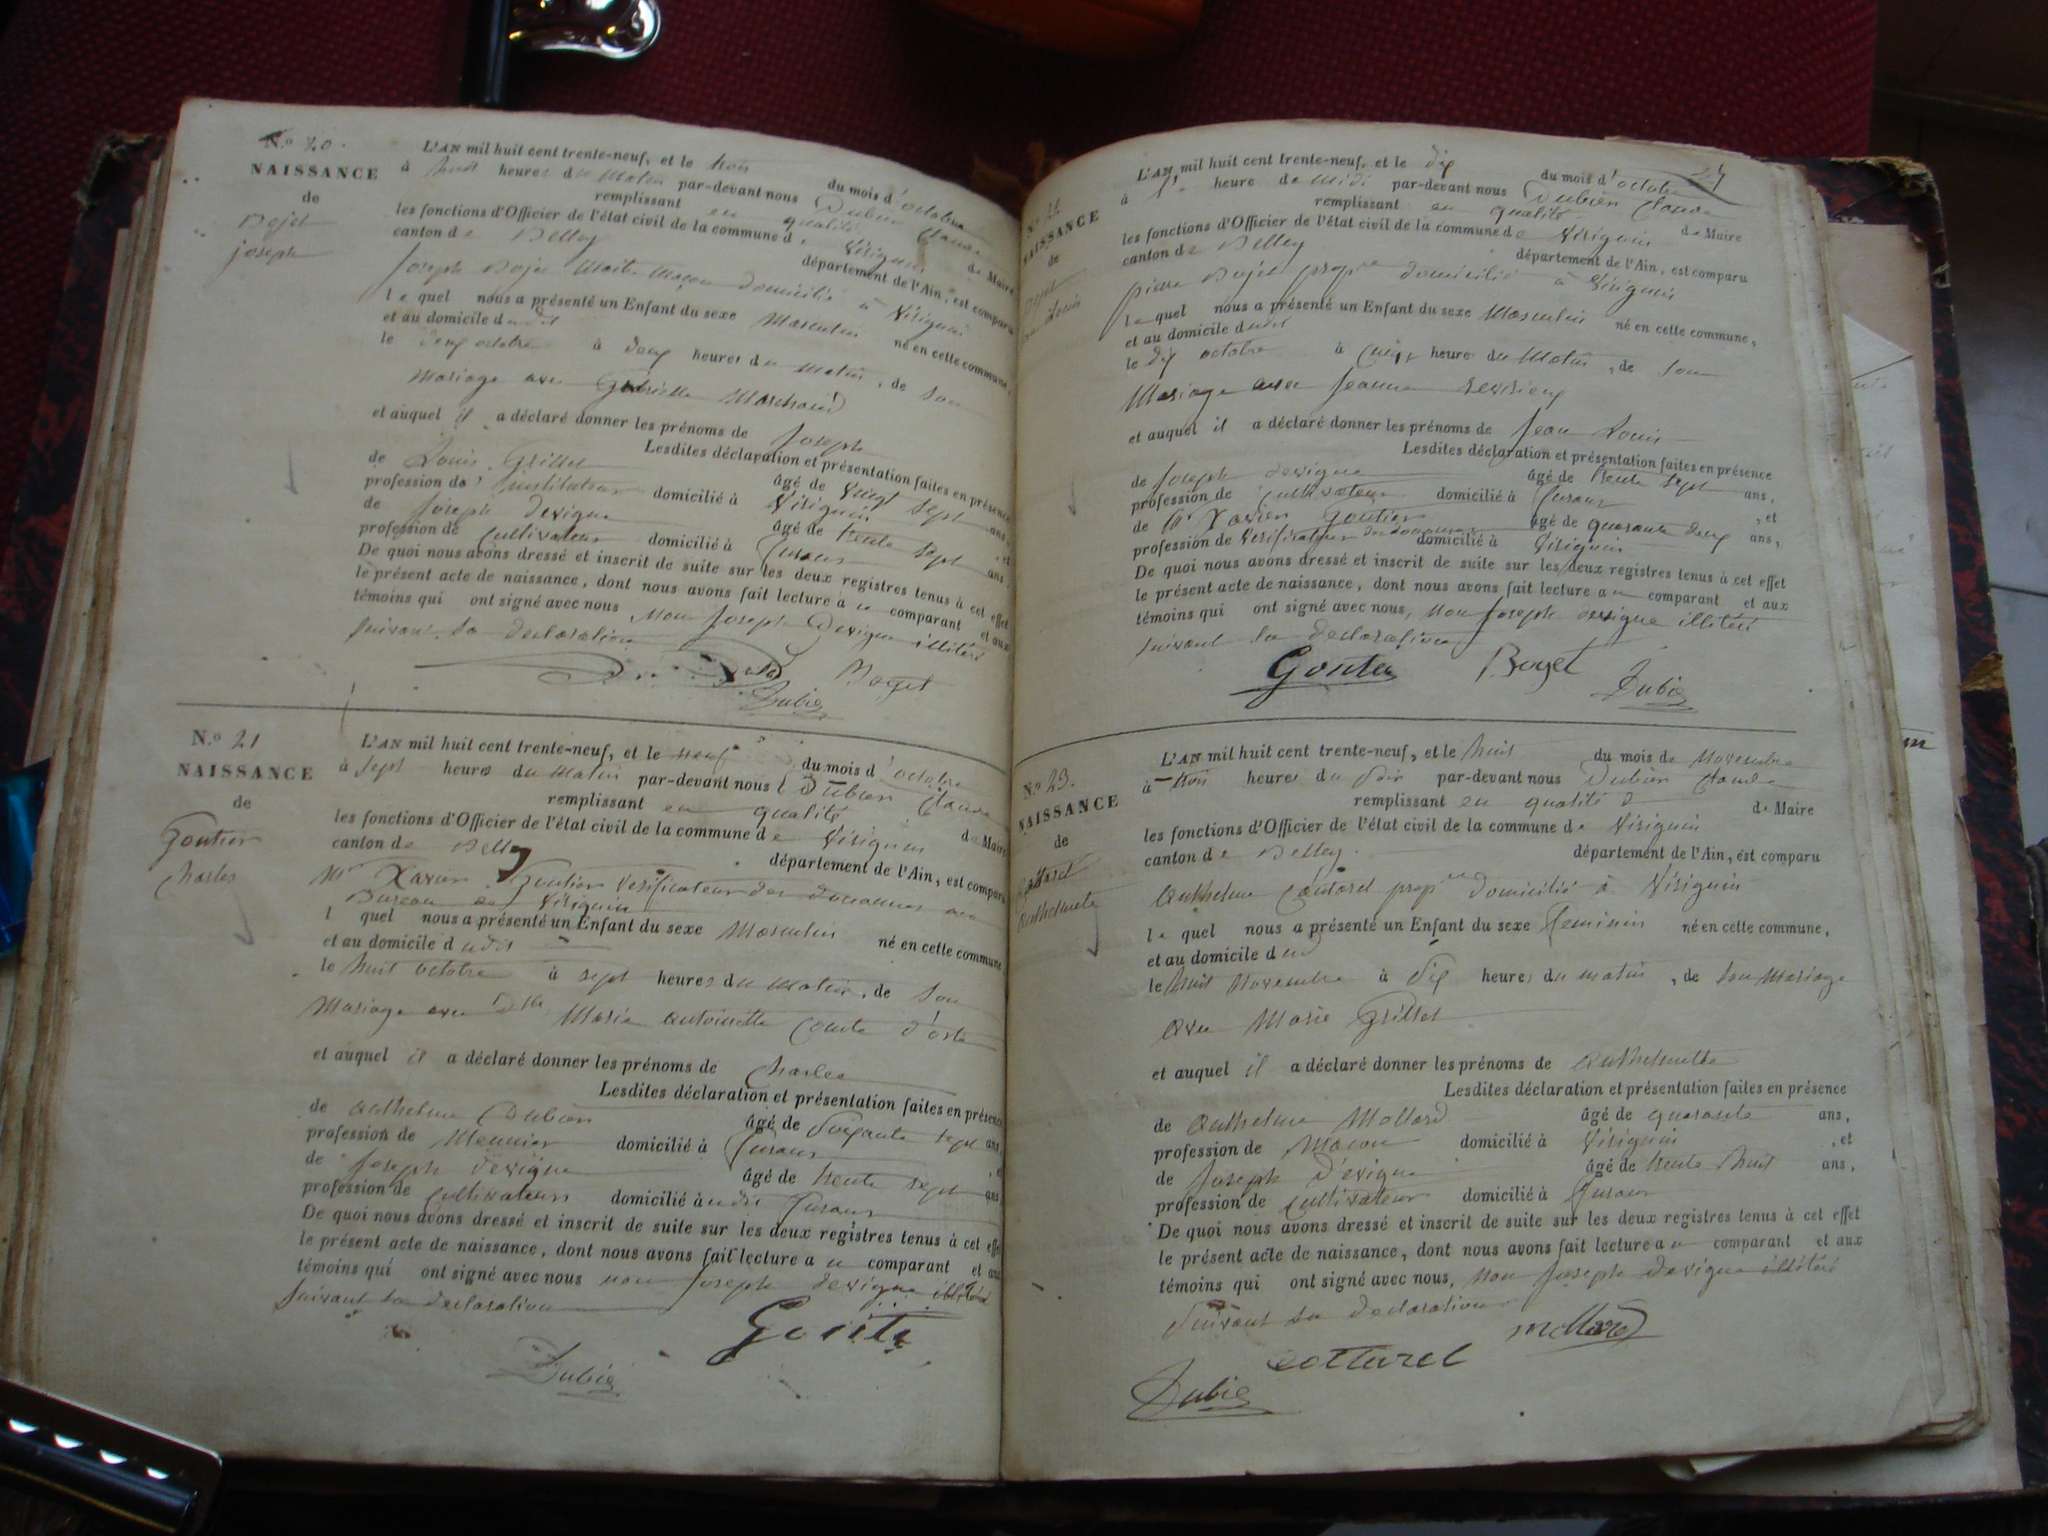 N.º 20.
NAISSANCE
de
Bojet
joseph
L'AN mil huit cent trente-neuf, et le trois du mois d'octobre
à huit heures du Matin par-devant nous Dubien Claude
remplissant en qualité de Maire
les fonctions d'Officier de l'état civil de la commune de Virignin
canton de Belley département de l'Ain, est comparu
Joseph Bojet Maitre Maçon domicilié à Virignin
lequel nous a présenté un Enfant du sexe Masculin né en cette commune,
et au domicile dudit
le deux octobre à deux heures du matin, de son
Mariage avec Gabrielle Marchand
et auquel il a déclaré donner les prénoms de Joseph
Lesdites déclaration et présentation faites en présence
de Louis Grillet âgé de Vingt Sept ans,
profession de instituteur domicilié à Virignin, et
de Joseph devigne âgé de trente Sept ans,
profession de Cultivateur domicilié à
De quoi nous avons dressé et inscrit de suite sur les deux registres tenus à cet effet
le présent acte de naissance, dont nous avons fait lecture au comparant et aux
témoins qui ont signé avec nous Non Joseph Devigne illitéré
suivant sa declaration
Boget
Dubien
N.º 21
NAISSANCE
de
Goutier
Charles
L'AN mil huit cent trente-neuf, et le neuf du mois d'octobre
à Sept heures du Matin par-devant nous Dubien Claude
remplissant en qualité de Maire
les fonctions d'Officier de l'état civil de la commune de Virignin
canton de Belley département de l'Ain, est comparu
Mr Xavier Goutier Vérificateur des douanes au
Bureau de Virignin
l quel nous a présenté un Enfant du sexe Masculin né en cette commune,
et au domicile dudit
le huit octobre à sept heures du Matin, de son
Mariage avec Dlle Marie antoinette Comte d'orta
et auquel il a déclaré donner les prénoms de Charles
Lesdites déclaration et présentation faites en présence
de anthelme Dubien âgé de Soixante sept ans,
profession de Meunier domicilié à, et
de Joseph devigne âgé de trente sept ans,
profession de Cultivateur domicilié à
De quoi nous avons dressé et inscrit de suite sur les deux registres tenus à cet effet
le présent acte de naissance, dont nous avons fait lecture au comparant et aux
témoins qui ont signé avec nous non Joseph devigne illitéré
suivant sa declaration
Goutier
Dubien
27
NAISSANCE
de
L'AN mil huit cent trente-neuf, et le dix du mois d'octobre
à heure de midi par-devant nous Dubien Claude
remplissant en qualité de Maire
les fonctions d'Officier de l'état civil de la commune de Virignin
canton de Belley département de l'Ain, est comparu
pierre Bojet propre domicilié à Virignin
lequel nous a présenté un Enfant du sexe Masculin né en cette commune,
et au domicile dudit
le dix octobre à cinq heure du Matin, de son
Mariage avec Jeanne
et auquel il a déclaré donner les prénoms de Jean Louis
Lesdites déclaration et présentation faites en présence
de Joseph devigne âgé de trente sept ans,
profession de Cultivateur domicilié à, et
de Mr Xavier Goutier âgé de quarante deux ans,
profession de Vérificateur des douanes domicilié à Virignin
De quoi nous avons dressé et inscrit de suite sur les deux registres tenus à cet effet
le présent acte de naissance, dont nous avons fait lecture au comparant et aux
témoins qui ont signé avec nous, Non Joseph devigne illitéré
suivant sa declaration
Goutier Boget Dubien
N.º 23.
NAISSANCE
de
Anthelmette
L'AN mil huit cent trente-neuf, et le huit du mois de Novembre
à trois heures du Soir par-devant nous Dubien Claude
remplissant en qualité de Maire
les fonctions d'Officier de l'état civil de la commune de Virignin
canton de Belley département de l'Ain, est comparu
Anthelme Cottarel propre domicilié à Virignin
lequel nous a présenté un Enfant du sexe Feminin né en cette commune,
et au domicile dud
le huit Novembre à dix heures du matin, de son Mariage
avec Marie Grillet
et auquel il a déclaré donner les prénoms de Anthelmette
Lesdites déclaration et présentation faites en présence
de Anthelme Mollard âgé de quarante ans,
profession de Macon domicilié à Virignin, et
de Joseph Devigne âgé de trente huit ans,
profession de Cultivateur domicilié à
De quoi nous avons dressé et inscrit de suite sur les deux registres tenus à cet effet
le présent acte de naissance, dont nous avons fait lecture au comparant et aux
témoins qui ont signé avec nous, Non Joseph devigne illitéré
suivant sa declaration
mollard
cottarel
Dubien